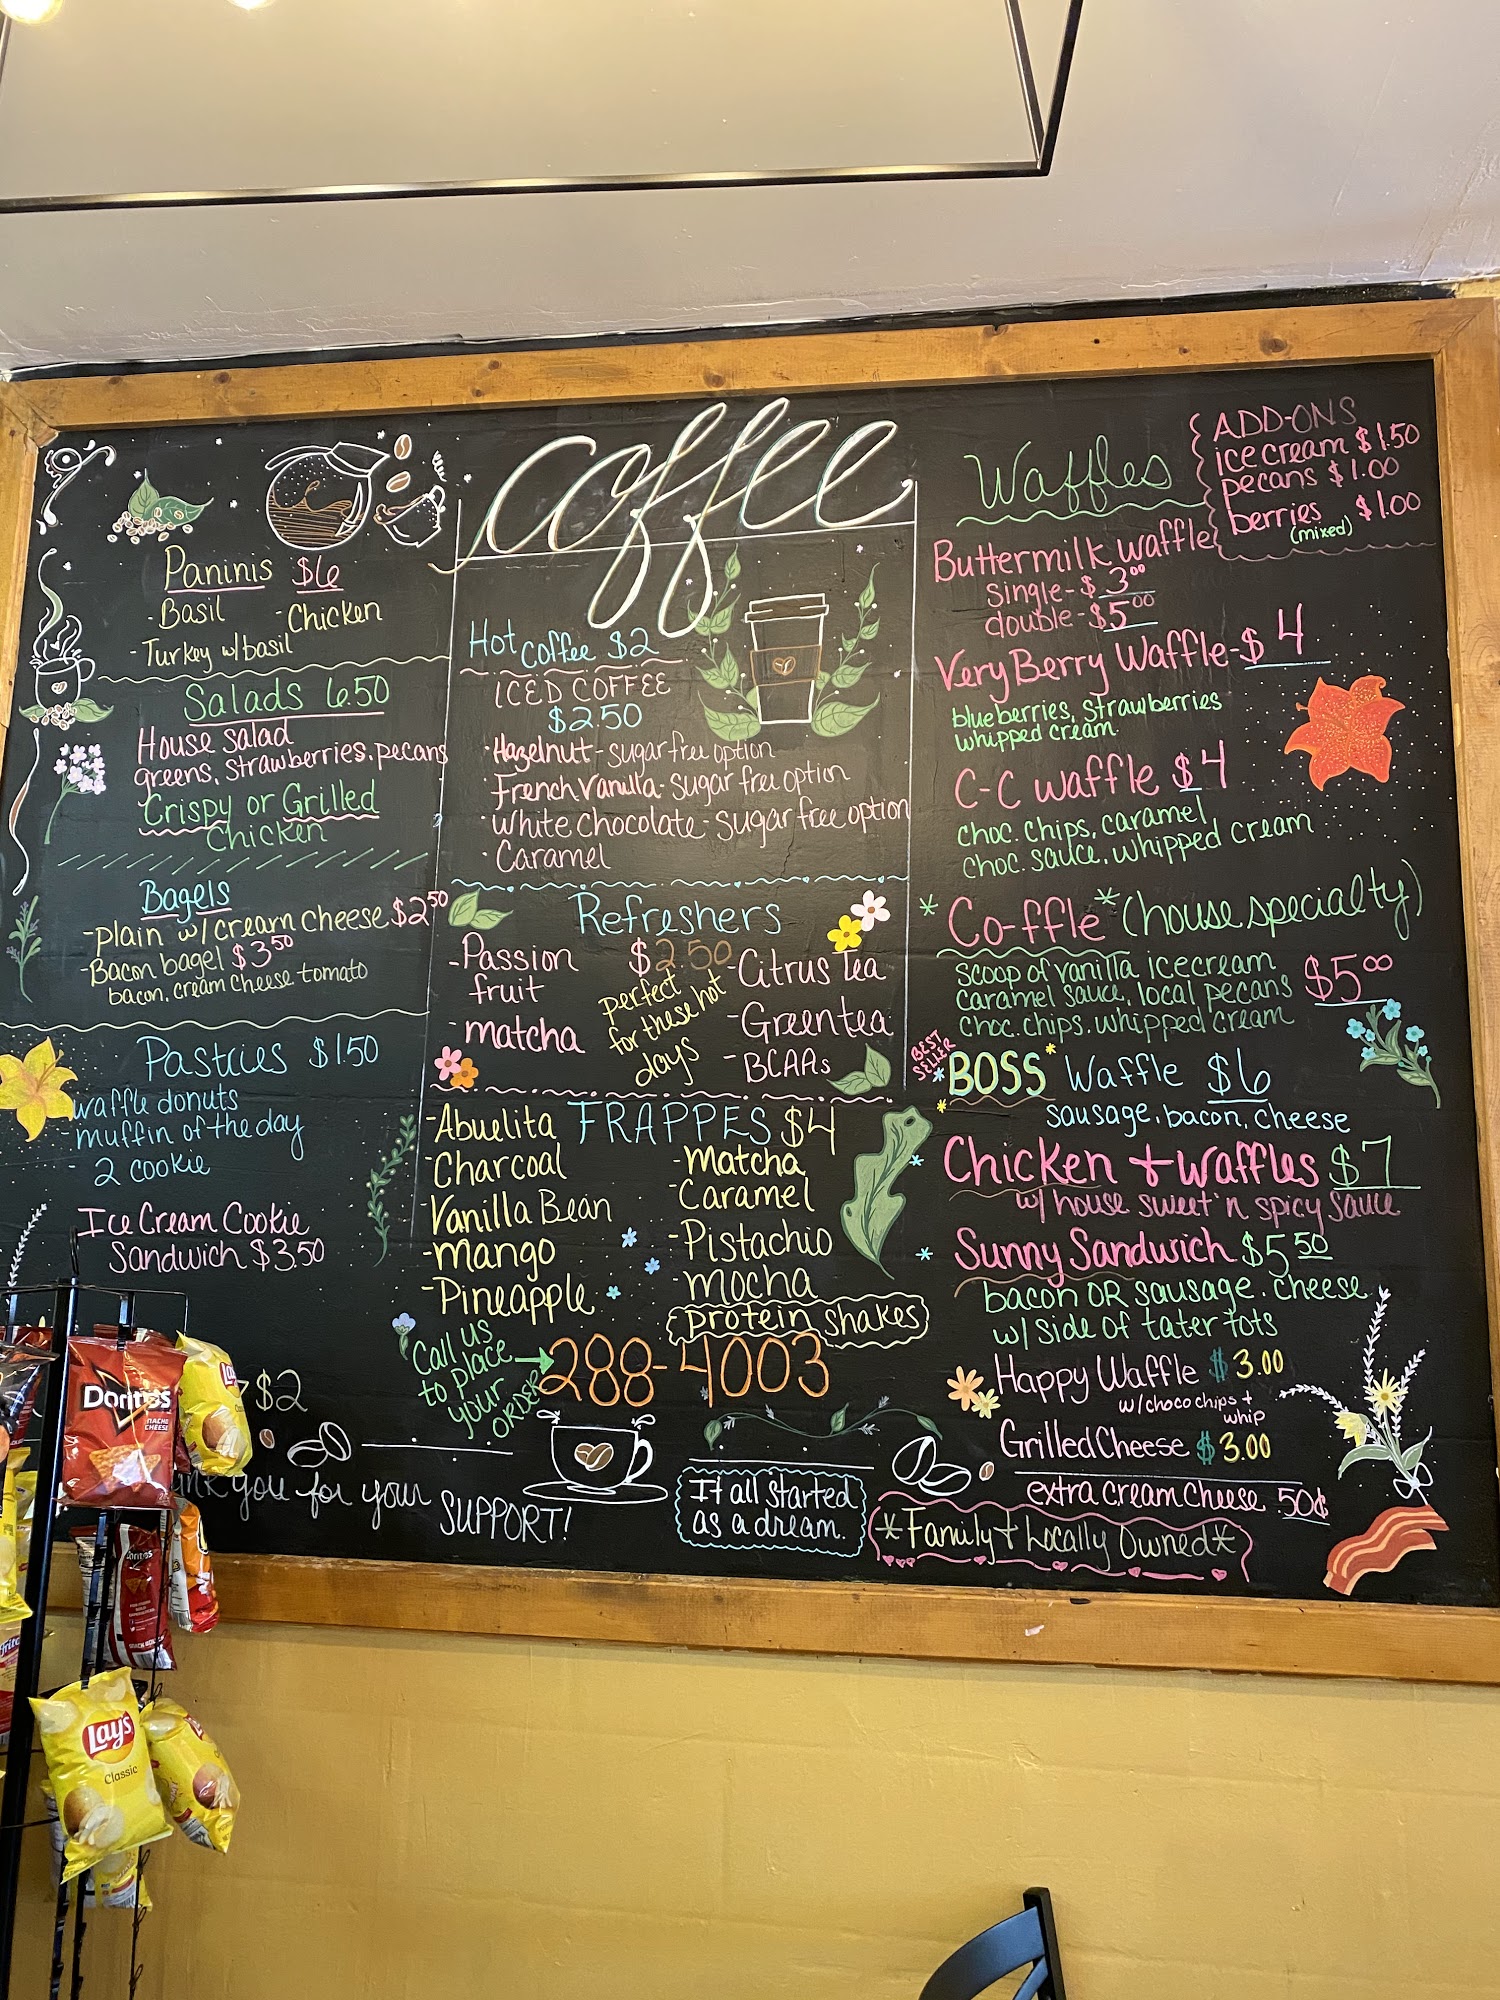 Paninis $6
- Basil
- Chicken
- Turkey w/ basil
Salads 6.50
House salad
greens, strawberries, pecans
Crispy or Grilled
Chicken
Bagels
- plain w/ cream cheese $2.50
- Bacon bagel $3.50
bacon, cream cheese tomato
Pastries $1.50
waffle donuts
- muffin of the day
- 2 cookie
Ice Cream Cookie
Sandwich $3.50
$2
you for your SUPPORT!
coffee
Hot coffee $2
ICED COFFEE
$2.50
· Hazelnut - sugar free option
· French Vanilla - sugar free option
· White chocolate - sugar free option
· Caramel
Refreshers
$2.50
- Passion
fruit
- matcha
perfect
for these hot
days
- Citrus tea
- Green tea
- BCAAs
FRAPPES $4
- Abuelita
- Charcoal
- Vanilla Bean
- Mango
- Pineapple
- Matcha
- Caramel
- Pistachio
- Mocha
protein shakes
Call us
to place
your
order
288-4003
It all started
as a dream.
Waffles
ADD-ONS
ice cream $1.50
pecans $1.00
berries $1.00
(mixed)
Buttermilk waffle
single - $3.00
double - $5.00
Very Berry Waffle - $4
blueberries, strawberries
whipped cream
C-C waffle $4
choc. chips, caramel,
choc. sauce, whipped cream
* Co-ffle * (house specialty)
scoop of vanilla icecream
caramel sauce, local pecans
choc. chips, whipped cream
$5.00
BEST
SELLER
BOSS Waffle $6
sausage, bacon, cheese
Chicken + Waffles $7
w/ house sweet 'n spicy sauce
Sunny Sandwich $5.50
bacon OR sausage, cheese
w/ side of tater tots
Happy Waffle $3.00
w/ choco chips +
whip
Grilled Cheese $3.00
extra cream cheese .50¢
*Family + Locally Owned*
Doritos
NACHO
CHEESE
Doritos
Lay's
Classic